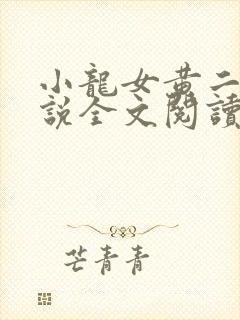 小龍女黄二
説全文閱讀
芒青青